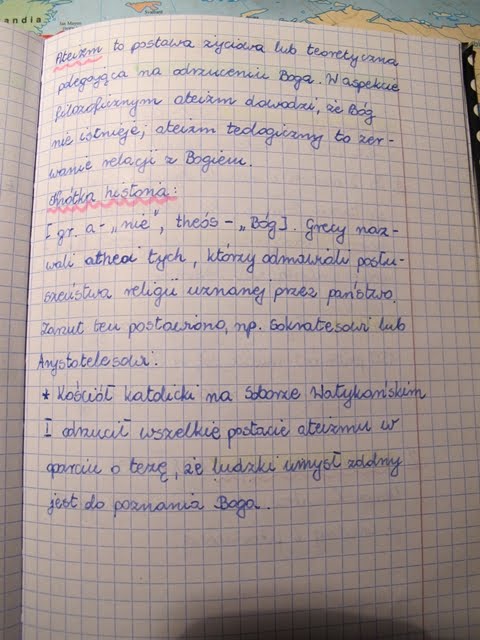 Islandia
Jan Mayen
Ateizm to postawa życiowa lub teoretyczna
polegająca na odrzuceniu Boga. W aspekcie
filozoficznym ateizm dowodzi, że Bóg
nie istnieje; ateizm teologiczny to zer-
wanie relacji z Bogiem.
Krótka historia:
[gr. a - „nie”, theós - „Bóg]. Grecy naz-
wali atheoi tych, którzy odmawiali posłu-
szeństwa religii uznanej przez państwo.
Zarzut ten postawiono, np. Sokratesowi lub
Arystotelesowi.
* Kościół katolicki na Soborze Watykańskim
I odrzucił wszelkie postacie ateizmu w
oparciu o tezę, że ludzki umysł zdolny
jest do poznania Boga.